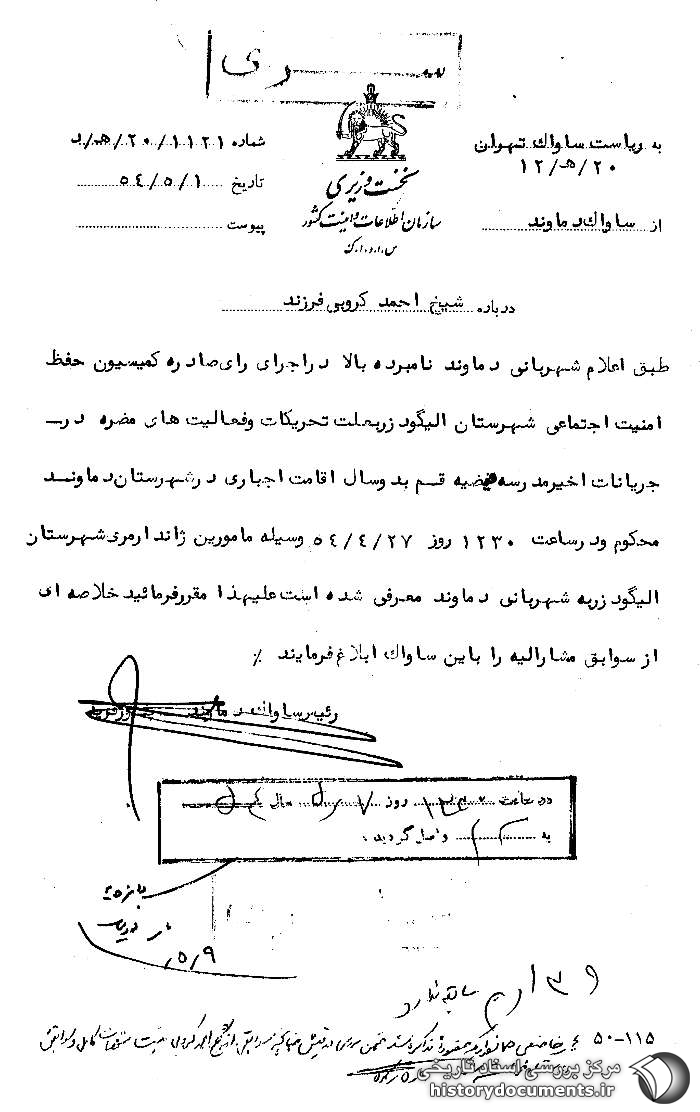 سری
به ریاست ساواک تهران
۲۰/هـ/۱۲
از ساواک دماوند
نخست وزیری
سازمان اطلاعات و امنیت کشور
س.ا.و.ا.ک
شماره ۲۰/۱۱۲۱/هـ/د
تاریخ ۵٤/٥/۱
پیوست
درباره شیخ احمد کروبی فرزند
طبق اعلام شهربانی دماوند نامبرده بالا در اجرای رای صادره کمیسیون حفظ
امنیت اجتماعی شهرستان الیگودرز بعلت تحریکات وفعالیت های مضره در
جریانات اخیر مدرسه فیضیه قم بدوسال اقامت اجباری در شهرستان دماوند
محکوم ودرساعت ۱۲۳۰ روز ۵٤/٤/۲۷ وسیله مامورین ژاندارمری شهرستان
الیگودرز به شهربانی دماوند معرفی شده است علیهذا مقرر فرمائید خلاصه ای
از سوابق مشارالیه را باین ساواک ابلاغ فرمایند ٪
رئیس ساواک دماوند
در ساعت روز سال
به واصل گردید
۵/۹
سابقه ندارد
۵۰-۱۱۵
مرکز بررسی اسناد تاریخی
historydocuments.ir